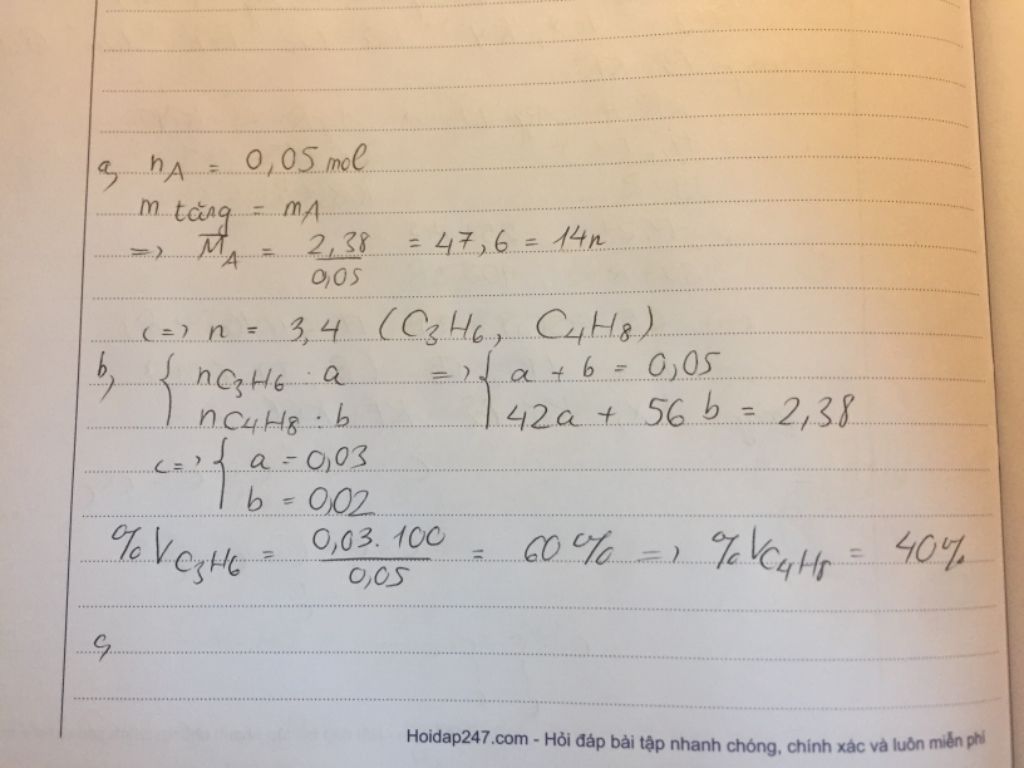 a, nA = 0,05 mol
m tăng = mA
=> M̅A = 2,38/0,05 = 47,6 = 14n
<=> n = 3,4 (C3H6, C4H8)
b, { nC3H6 : a => { a + b = 0,05
nC4H8 : b 42a + 56b = 2,38
<=> { a = 0,03
b = 0,02
%VC3H6 = 0,03.100/0,05 = 60% => %VC4H8 = 40%
c,
Hoidap247.com - Hỏi đáp bài tập nhanh chóng, chính xác và luôn miễn phí